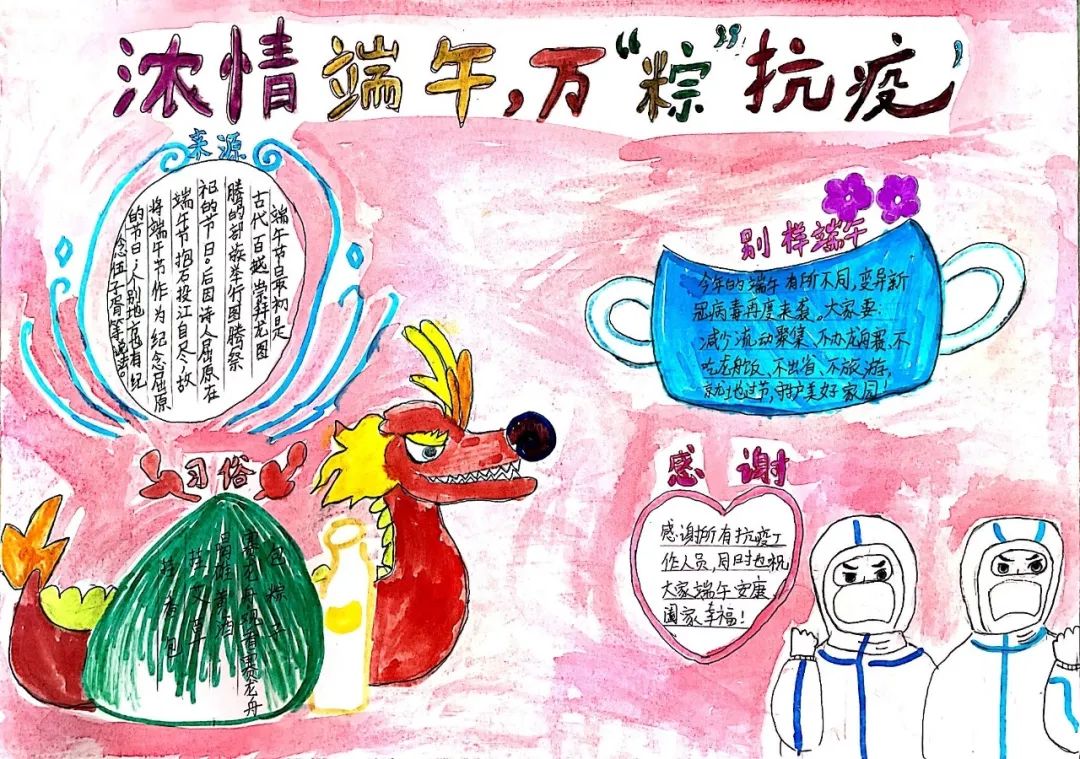 浓情端午，万“粽”抗疫
来源
端午节最初是
古代百越崇拜龙图
腾的部族举行图腾祭
祀的节日。后因诗人屈原在
端午节抱石投江自尽，故
将端午节作为纪念屈原
的节日，个别地方也有纪
念伍子胥等说法。
习俗
包粽子
赛龙舟观看赛龙舟
喝雄黄酒
挂艾草
挂香包
别样端午
今年的端午有所不同，变异新
冠病毒再度来袭。大家要
减少流动聚集、不办龙舟赛、不
吃龙舟饭、不出省、不旅游，
就地过节，守护美好家园！
感谢
感谢所有抗疫工
作人员，同时也祝
大家端午安康、
阖家幸福！